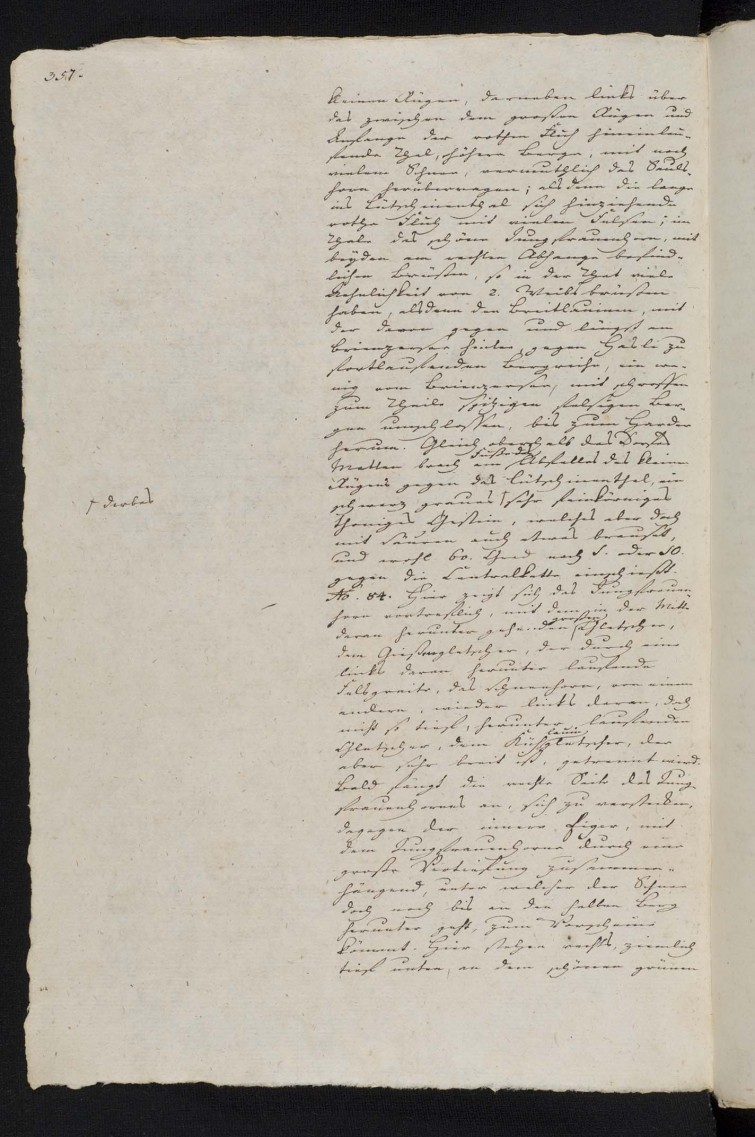 357.
kleinen Rügen, darneben links über
das zwischen dem großen Rügen und
Anfange der rothen Fluh hineinlau-
fende Thal, höhere Berge, mit noch
vielem Schnee, vermuthlich das Sauls-
horn herüberragen; alsdenn die lange
ins Lütschinenthal sich hinziehende
rothe Fluh mit vielen Felsen; im
Thale das schöne Jungfrauenhorn, mit
beyden am rechten Abhange befind-
lichen Brüsten, so in der That viele
Aehnlichkeit von 2. Weibsbrüsten
haben, alsdenn den Breitlauinen, mit
der davon gegen und längst am
Brienzersee hinten gegen Hasli zu
fortlaufenden Bergreihe, ein we-
nig vom Brienzersee, mit schroffen
zum Theile spitzigen felsigen Ber-
gen umschlossen, bis zum Harder
herum. Gleich oberhalb des Dorfes
Matten brach am Fuße des Abfalles des kleinen
Rügens gegen das Lütschinenthal, ein
schwarz graues † sehr feinkörniges
† derbes
thoniges Gestein, welches aber doch
mit Säuren auch etwas brauset,
und wohl 60. Grad nach S. oder SO.
gegen die Centralkette einschießt.
No. 54. Hier zeigt sich das Jungfrauen-
horn vortreflich, mit dem in der Mitte
daran herunter gehenden großen Gletscher,
dem Gießengletscher, der durch eine
links daran herunter laufende
Felsgräite, das Schneehorn, von einem
andern, wieder links daran, doch
nicht so tief, herunter laufenden
Gletscher, dem Kühlauingletscher, der
aber sehr breit ist, getrennt wird.
Bald fängt die rechte Seite des Jung-
frauenhornes an, sich zu verstecken,
dagegen der innere Eiger, mit
dem Jungfrauenhorne durch eine
große Vertiefung zusammen-
hängend, unter welcher der Schnee
doch noch bis an den halben Berg
herunter geht, zum Vorscheine
kömmt. Hier stehen rechts, ziemlich
tief unten, an dem schönen grünen